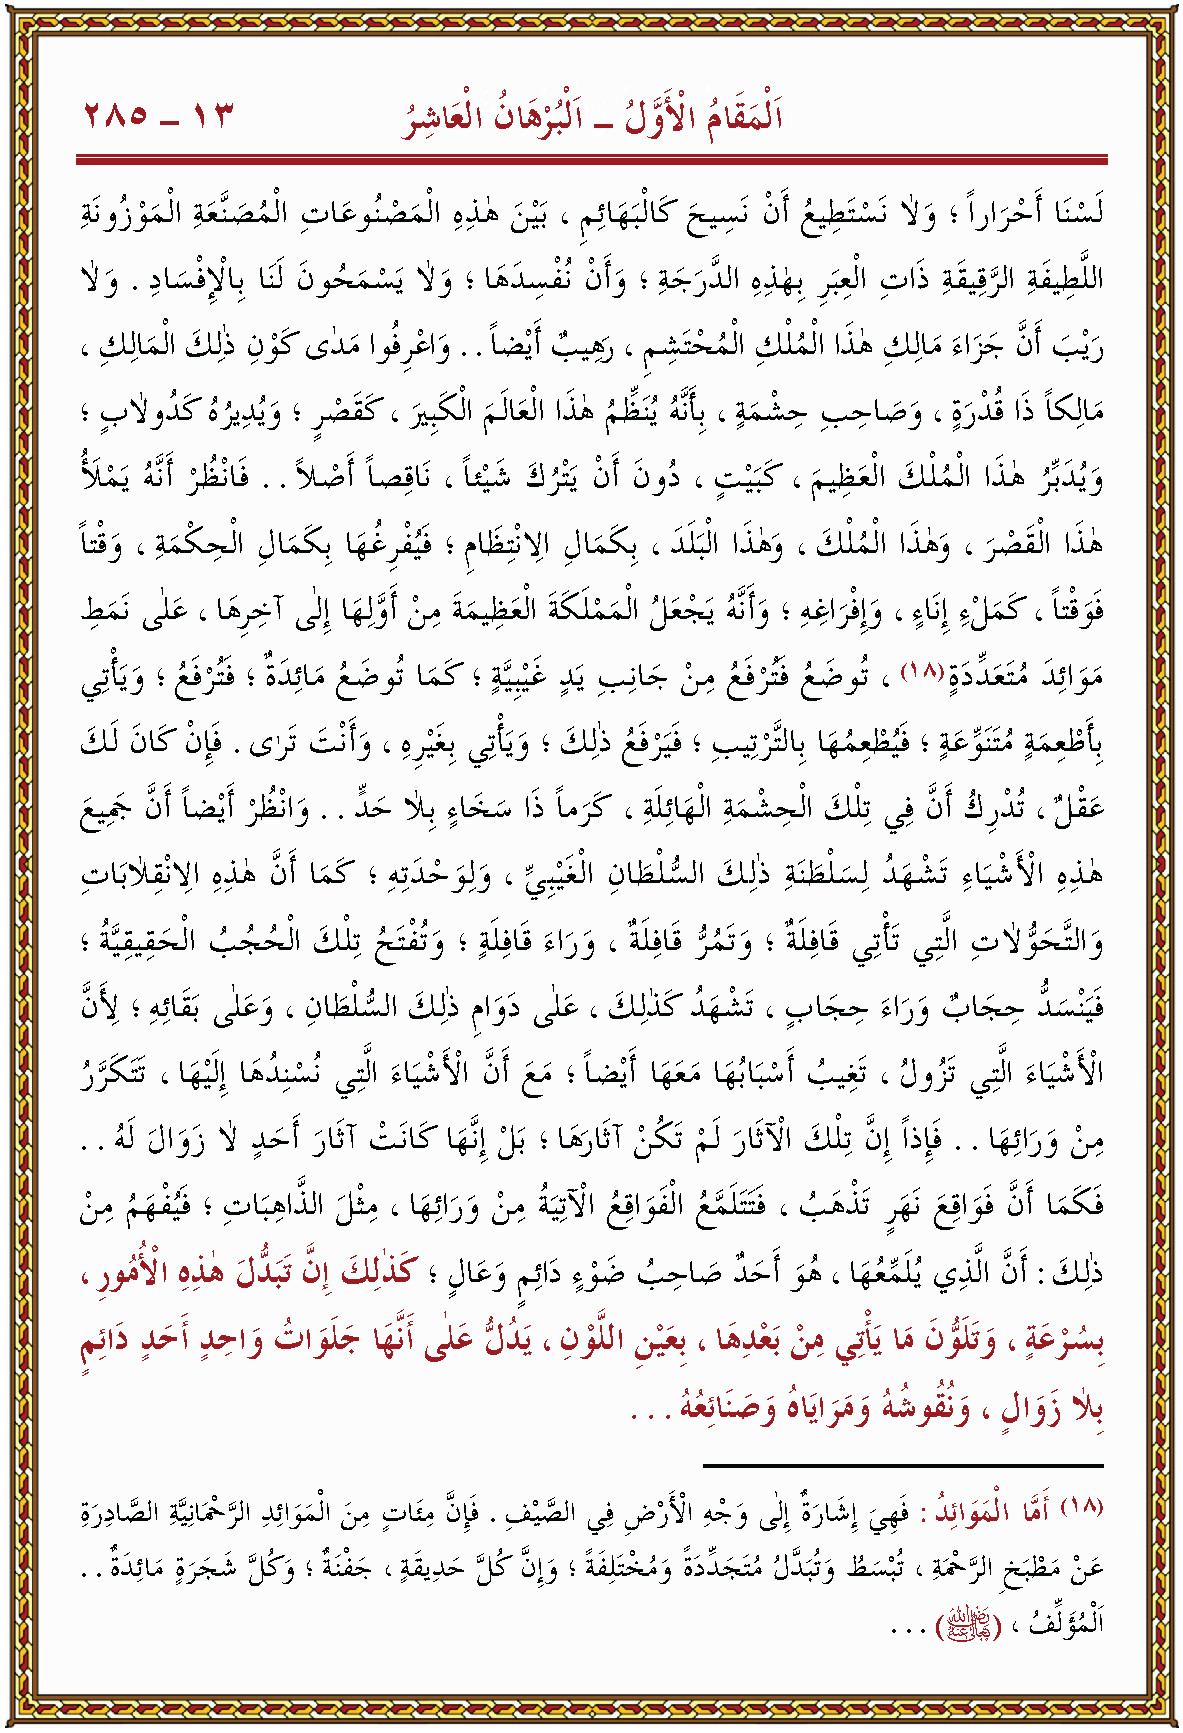 اَلْمَقَامُ الْأَوَّلُ ــ اَلْبُرْهَانُ الْعَاشِرُ ١٣ ــ ٢٨٥
لَسْنَا أَحْرَاراً ؛ وَلٰا نَسْتَطِيعُ أَنْ نَسِيحَ كَالْبَهَائِمِ ، بَيْنَ هٰذِهِ الْمَصْنُوعَاتِ الْمُصَنَّعَةِ الْمَوْزُونَةِ
اللَّطِيفَةِ الرَّقِيقَةِ ذَاتِ الْعِبَرِ بِهٰذِهِ الدَّرَجَةِ ؛ وَأَنْ نُفْسِدَهَا ؛ وَلٰا يَسْمَحُونَ لَنَا بِالْإِفْسَادِ . وَلٰا
رَيْبَ أَنَّ جَزَاءَ مَالِكِ هٰذَا الْمُلْكِ الْمُحْتَشِمِ ، رَهِيبٌ أَيْضاً . . وَاعْرِفُوا مَدٰى كَوْنِ ذٰلِكَ الْمَالِكِ ،
مَالِكاً ذَا قُدْرَةٍ ، وَصَاحِبِ حِشْمَةٍ ، بِأَنَّهُ يُنَظِّمُ هٰذَا الْعَالَمَ الْكَبِيرَ ، كَقَصْرٍ ؛ وَيُدِيرُهُ كَدُولٰابٍ ؛
وَيُدَبِّرُ هٰذَا الْمُلْكَ الْعَظِيمَ ، كَبَيْتٍ ، دُونَ أَنْ يَتْرُكَ شَيْئاً ، نَاقِصاً أَصْلاً . . فَانْظُرْ أَنَّهُ يَمْلَأُ
هٰذَا الْقَصْرَ ، وَهٰذَا الْمُلْكَ ، وَهٰذَا الْبَلَدَ ، بِكَمَالِ الِانْتِظَامِ ؛ فَيُفْرِغُهَا بِكَمَالِ الْحِكْمَةِ ، وَقْتاً
فَوَقْتاً ، كَمَلْءِ إِنَاءٍ ، وَإِفْرَاغِهِ ؛ وَأَنَّهُ يَجْعَلُ الْمَمْلَكَةَ الْعَظِيمَةَ مِنْ أَوَّلِهَا إِلٰى آخِرِهَا ، عَلٰى نَمَطِ
مَوَائِدَ مُتَعَدِّدَةٍ(١٨) ، تُوضَعُ فَتُرْفَعُ مِنْ جَانِبِ يَدٍ غَيْبِيَّةٍ ؛ كَمَا تُوضَعُ مَائِدَةٌ ؛ فَتُرْفَعُ ؛ وَيَأْتِي
بِأَطْعِمَةٍ مُتَنَوِّعَةٍ ؛ فَيُطْعِمُهَا بِالتَّرْتِيبِ ؛ فَيَرْفَعُ ذٰلِكَ ؛ وَيَأْتِي بِغَيْرِهِ ، وَأَنْتَ تَرٰى . فَإِنْ كَانَ لَكَ
عَقْلٌ ، تُدْرِكُ أَنَّ فِي تِلْكَ الْحِشْمَةِ الْهَائِلَةِ ، كَرَماً ذَا سَخَاءٍ بِلٰا حَدٍّ . . وَانْظُرْ أَيْضاً أَنَّ جَمِيعَ
هٰذِهِ الْأَشْيَاءِ تَشْهَدُ لِسَلْطَنَةِ ذٰلِكَ السُّلْطَانِ الْغَيْبِيِّ ، وَلِوَحْدَتِهِ ؛ كَمَا أَنَّ هٰذِهِ الِانْقِلٰابَاتِ
وَالتَّحَوُّلٰاتِ الَّتِي تَأْتِي قَافِلَةٌ ؛ وَتَمُرُّ قَافِلَةٌ ، وَرَاءَ قَافِلَةٍ ؛ وَتُفْتَحُ تِلْكَ الْحُجُبُ الْحَقِيقِيَّةُ ؛
فَيَنْسَدُّ حِجَابٌ وَرَاءَ حِجَابٍ ، تَشْهَدُ كَذٰلِكَ ، عَلٰى دَوَامِ ذٰلِكَ السُّلْطَانِ ، وَعَلٰى بَقَائِهِ ؛ لِأَنَّ
الْأَشْيَاءَ الَّتِي تَزُولُ ، تَغِيبُ أَسْبَابُهَا مَعَهَا أَيْضاً ؛ مَعَ أَنَّ الْأَشْيَاءَ الَّتِي نُسْنِدُهَا إِلَيْهَا ، تَتَكَرَّرُ
مِنْ وَرَائِهَا . . فَإِذاً إِنَّ تِلْكَ الْآثَارَ لَمْ تَكُنْ آثَارَهَا ؛ بَلْ إِنَّهَا كَانَتْ آثَارَ أَحَدٍ لٰا زَوَالَ لَهُ . .
فَكَمَا أَنَّ فَوَاقِعَ نَهَرٍ تَذْهَبُ ، فَتَتَلَمَّعُ الْفَوَاقِعُ الْآتِيَةُ مِنْ وَرَائِهَا ، مِثْلَ الذَّاهِبَاتِ ؛ فَيُفْهَمُ مِنْ
ذٰلِكَ : أَنَّ الَّذِي يُلَمِّعُهَا ، هُوَ أَحَدٌ صَاحِبُ ضَوْءٍ دَائِمٍ وَعَالٍ ؛ كَذٰلِكَ إِنَّ تَبَدُّلَ هٰذِهِ الْأُمُورِ ،
بِسُرْعَةٍ ، وَتَلَوُّنَ مَا يَأْتِي مِنْ بَعْدِهَا ، بِعَيْنِ اللَّوْنِ ، يَدُلُّ عَلٰى أَنَّهَا جَلَوَاتُ وَاحِدٍ أَحَدٍ دَائِمٍ
بِلٰا زَوَالٍ ، وَنُقُوشُهُ وَمَرَايَاهُ وَصَنَائِعُهُ . . .
(١٨) أَمَّا الْمَوَائِدُ : فَهِيَ إِشَارَةٌ إِلٰى وَجْهِ الْأَرْضِ فِي الصَّيْفِ . فَإِنَّ مِئَاتٍ مِنَ الْمَوَائِدِ الرَّحْمَانِيَّةِ الصَّادِرَةِ
عَنْ مَطْبَخِ الرَّحْمَةِ ، تُبْسَطُ وَتُبَدَّلُ مُتَجَدِّدَةً وَمُخْتَلِفَةً ؛ وَإِنَّ كُلَّ حَدِيقَةٍ ، جَفْنَةٌ ؛ وَكُلَّ شَجَرَةٍ مَائِدَةٌ . .
اَلْمُؤَلِّفُ ، (رَضِيَ اللهُ تَعَالَى عَنْهُ) . . .